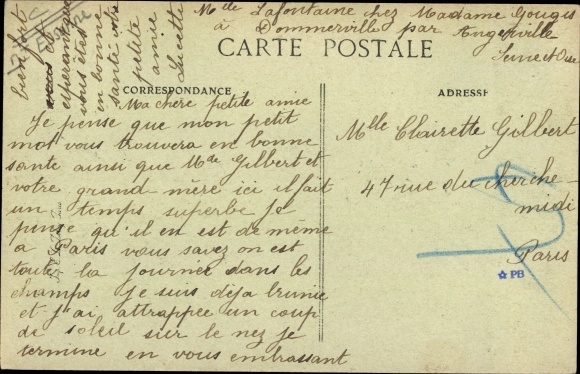 Mlle Lafontaine chez Madame Gougis
à Dommerville par Angerville
Seine et Oise
CARTE POSTALE
CORRESPONDANCE
ADRESSE
Ma chère petite amie
Je pense que mon petit
mot vous trouvera en bonne
santé ainsi que Mde Gilbert et
votre grand mère ici il fait
un temps superbe je
pense qu'il en est de même
a Paris vous savez on est
toute la journée dans les
champs je suis déja brunie
et j'ai attrappée un coup
de soleil sur le nez je
termine en vous embrassant
bien fort
et
espérant que
vous êtes
en bonne
santé votre
petite
amie
Lucette
Mlle Clairette Gilbert
47 rue du cherche
midi
Paris
PB